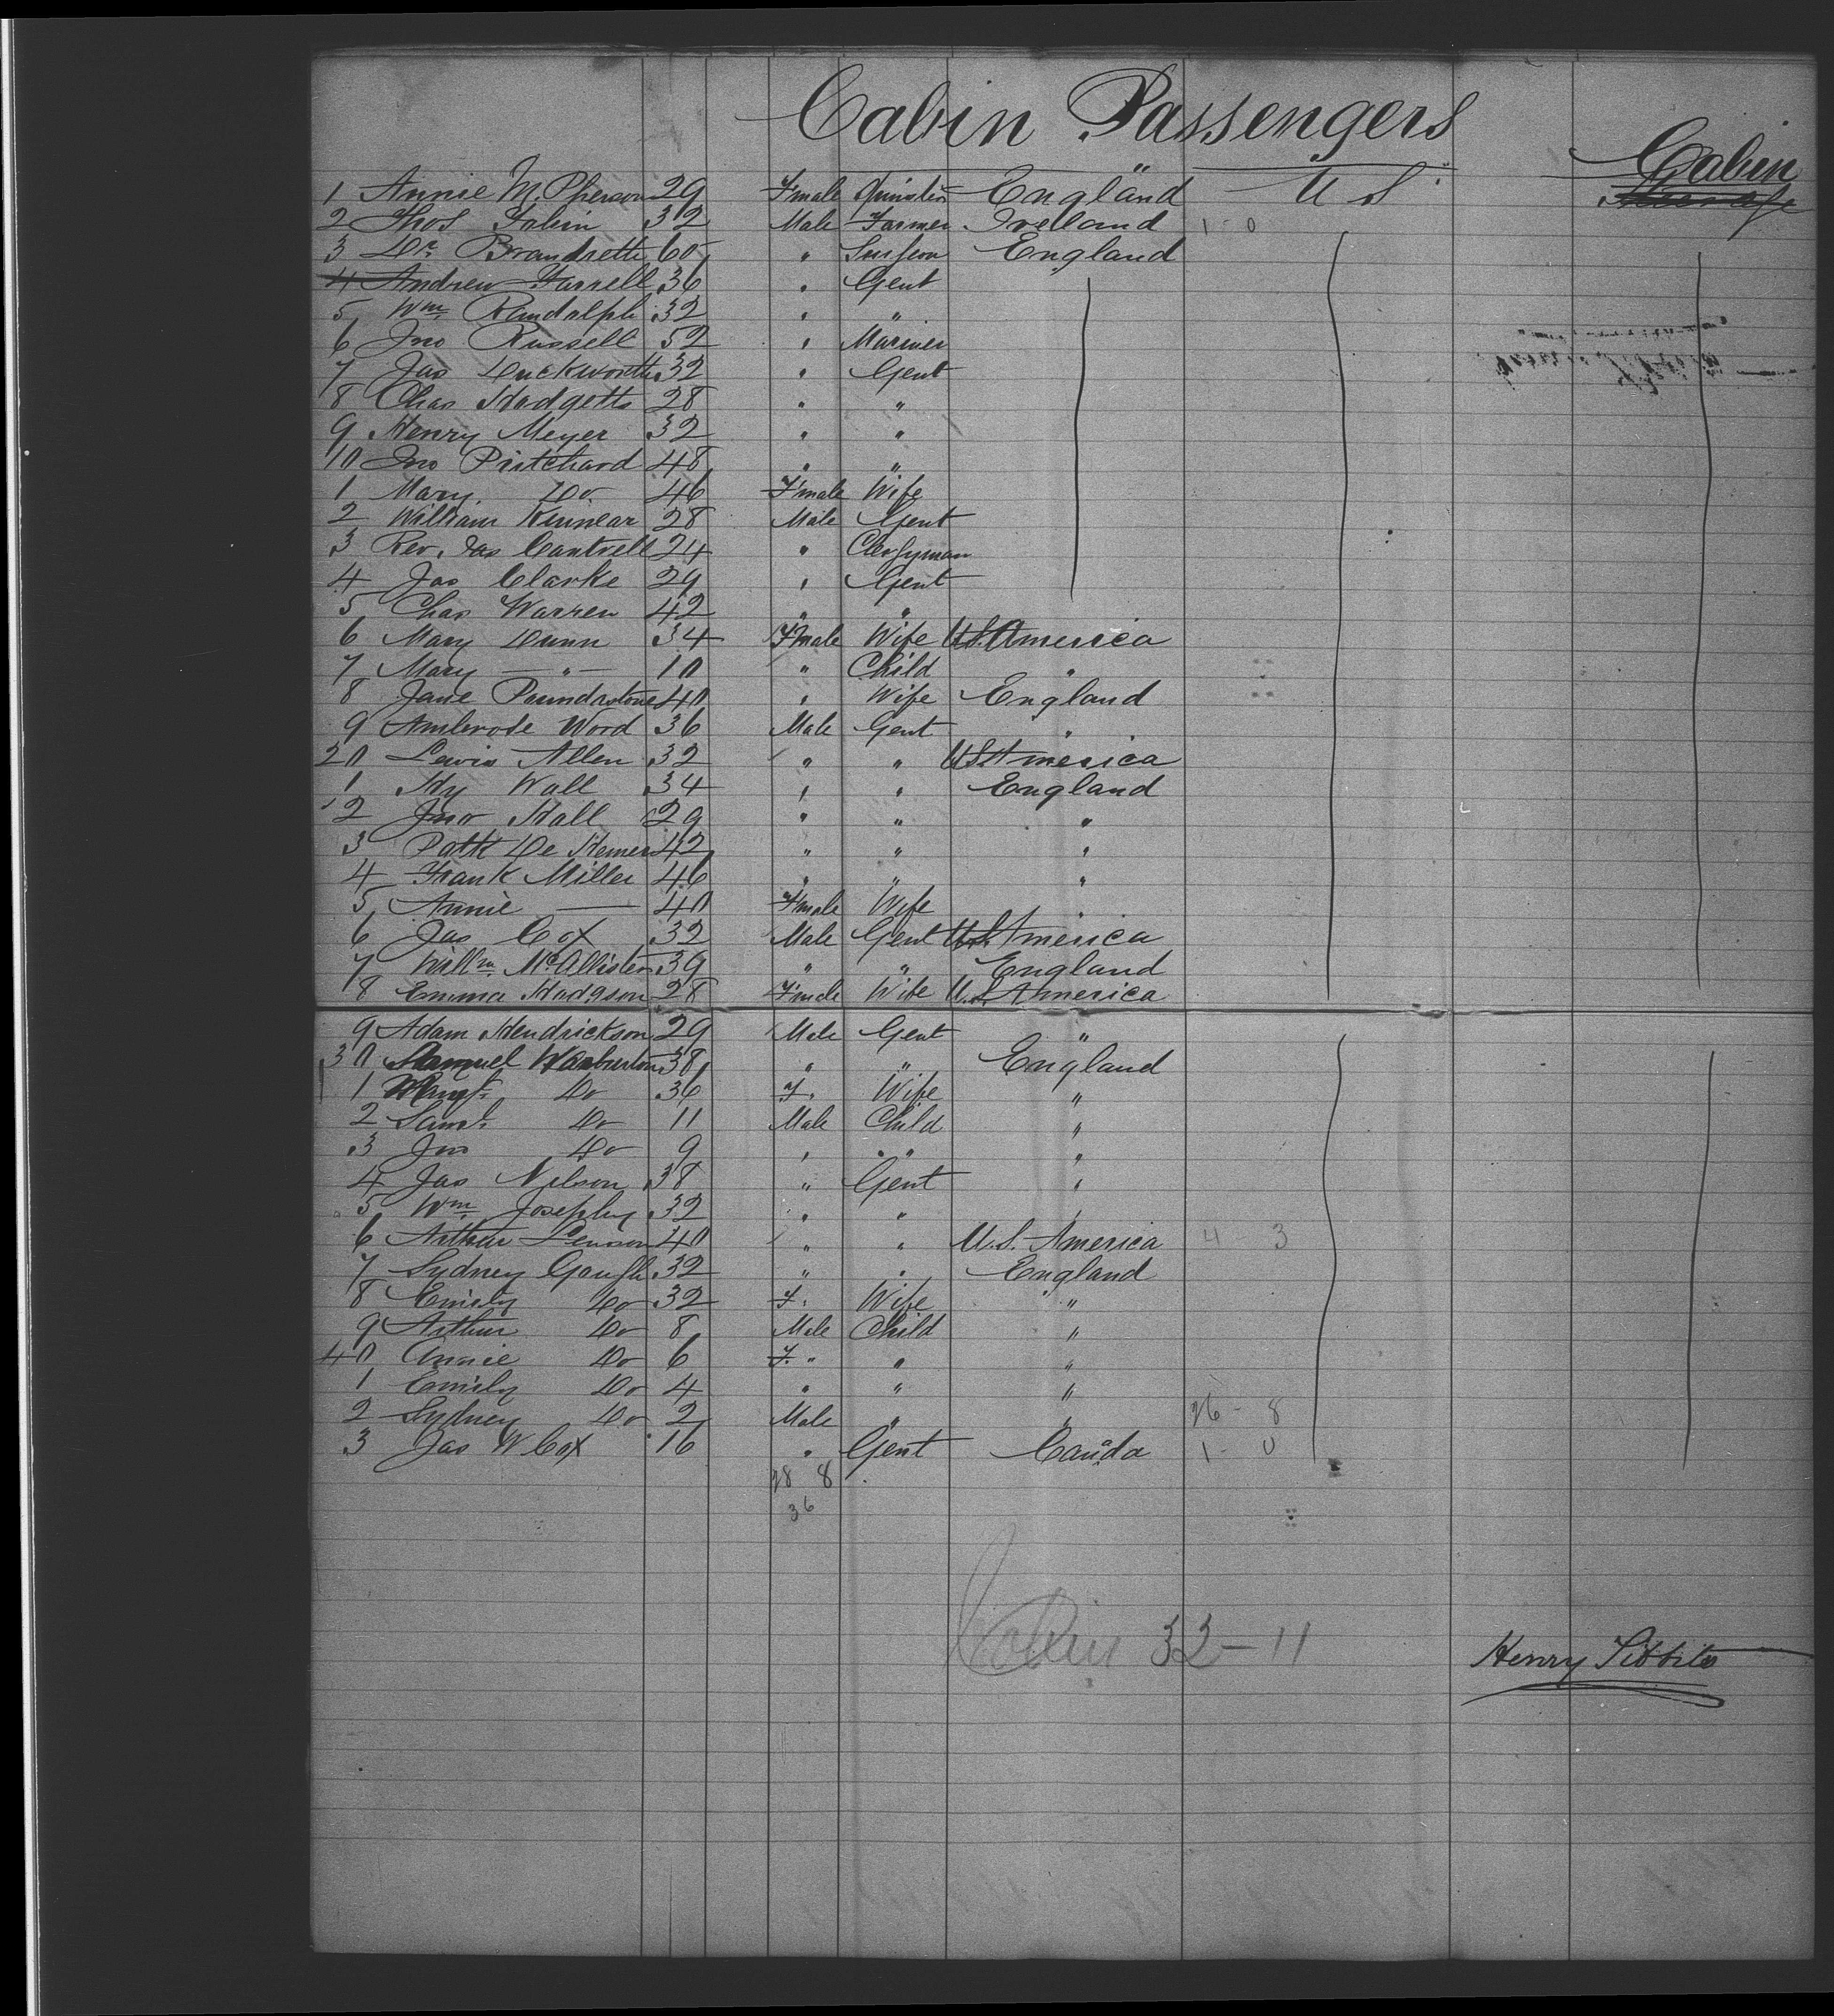 Cabin Passengers
Cabin
1 Annie McPherson 29 F'male Spinster England U S
2 Thos Tobin 32 Male Farmer Ireland 1 - 0
3 Dr Brandrette 60 " Surgeon England
4 Andrew Farrell 36 " Gent
5 Wm Randalph 32 " "
6 Jno Russell 52 " Mariner
7 Jas Duckworth 32 " Gent
8 Chas Hadgetts 28 " "
9 Henry Meyer 32 " "
10 Jno Pritchard 48 " "
1 Mary Do 46 F'male Wife
2 William Kinnear 28 Male Gent
3 Rev. Jas Cantrell 24 " Clergyman
4 Jas Clarke 29 " Gent
5 Chas Warren 42 " "
6 Mary Dunn 34 F'male Wife U.S. America
7 Mary " 10 " Child "
8 Jane Poundastone 40 " Wife England
9 Ambrose Word 36 Male Gent "
20 Lewis Allen 32 " " U S America
1 Hy Wall 34 " " England
2 Jno Hall 29 " " "
3 Patk De Hemer 42 " " "
4 Frank Miller 46 " " "
5 Annie — 40 F'male Wife "
6 Jas Cox 32 Male Gent U.S. America
7 Willm McAllister 39 " " England
8 Emma Hodgson 28 F'male Wife U.S. America
9 Adam Hendrickson 29 Male Gent "
30 Samuel Warburton 38 " " England
1 Margt Do 36 F. Wife "
2 Saml Do 11 Male Child "
3 Jno Do 9 " " "
4 Jas Nilson 38 " Gent "
5 Wm Josephy 32 " " "
6 Arthur 40 " " U.S. America 4 3
7 Sydney Gough 32 " " England
8 Emily Do 32 F. Wife "
9 Arthur Do 8 Male Child "
40 Annie Do 6 F. " " "
1 Emily Do 4 " " "
2 Sydney Do 2 Male " " 26 - 8
3 Jas W Cox 16 " Gent Canada 1 - 0
28 8
36
Cabin 32 - 11
Henry Tibbits